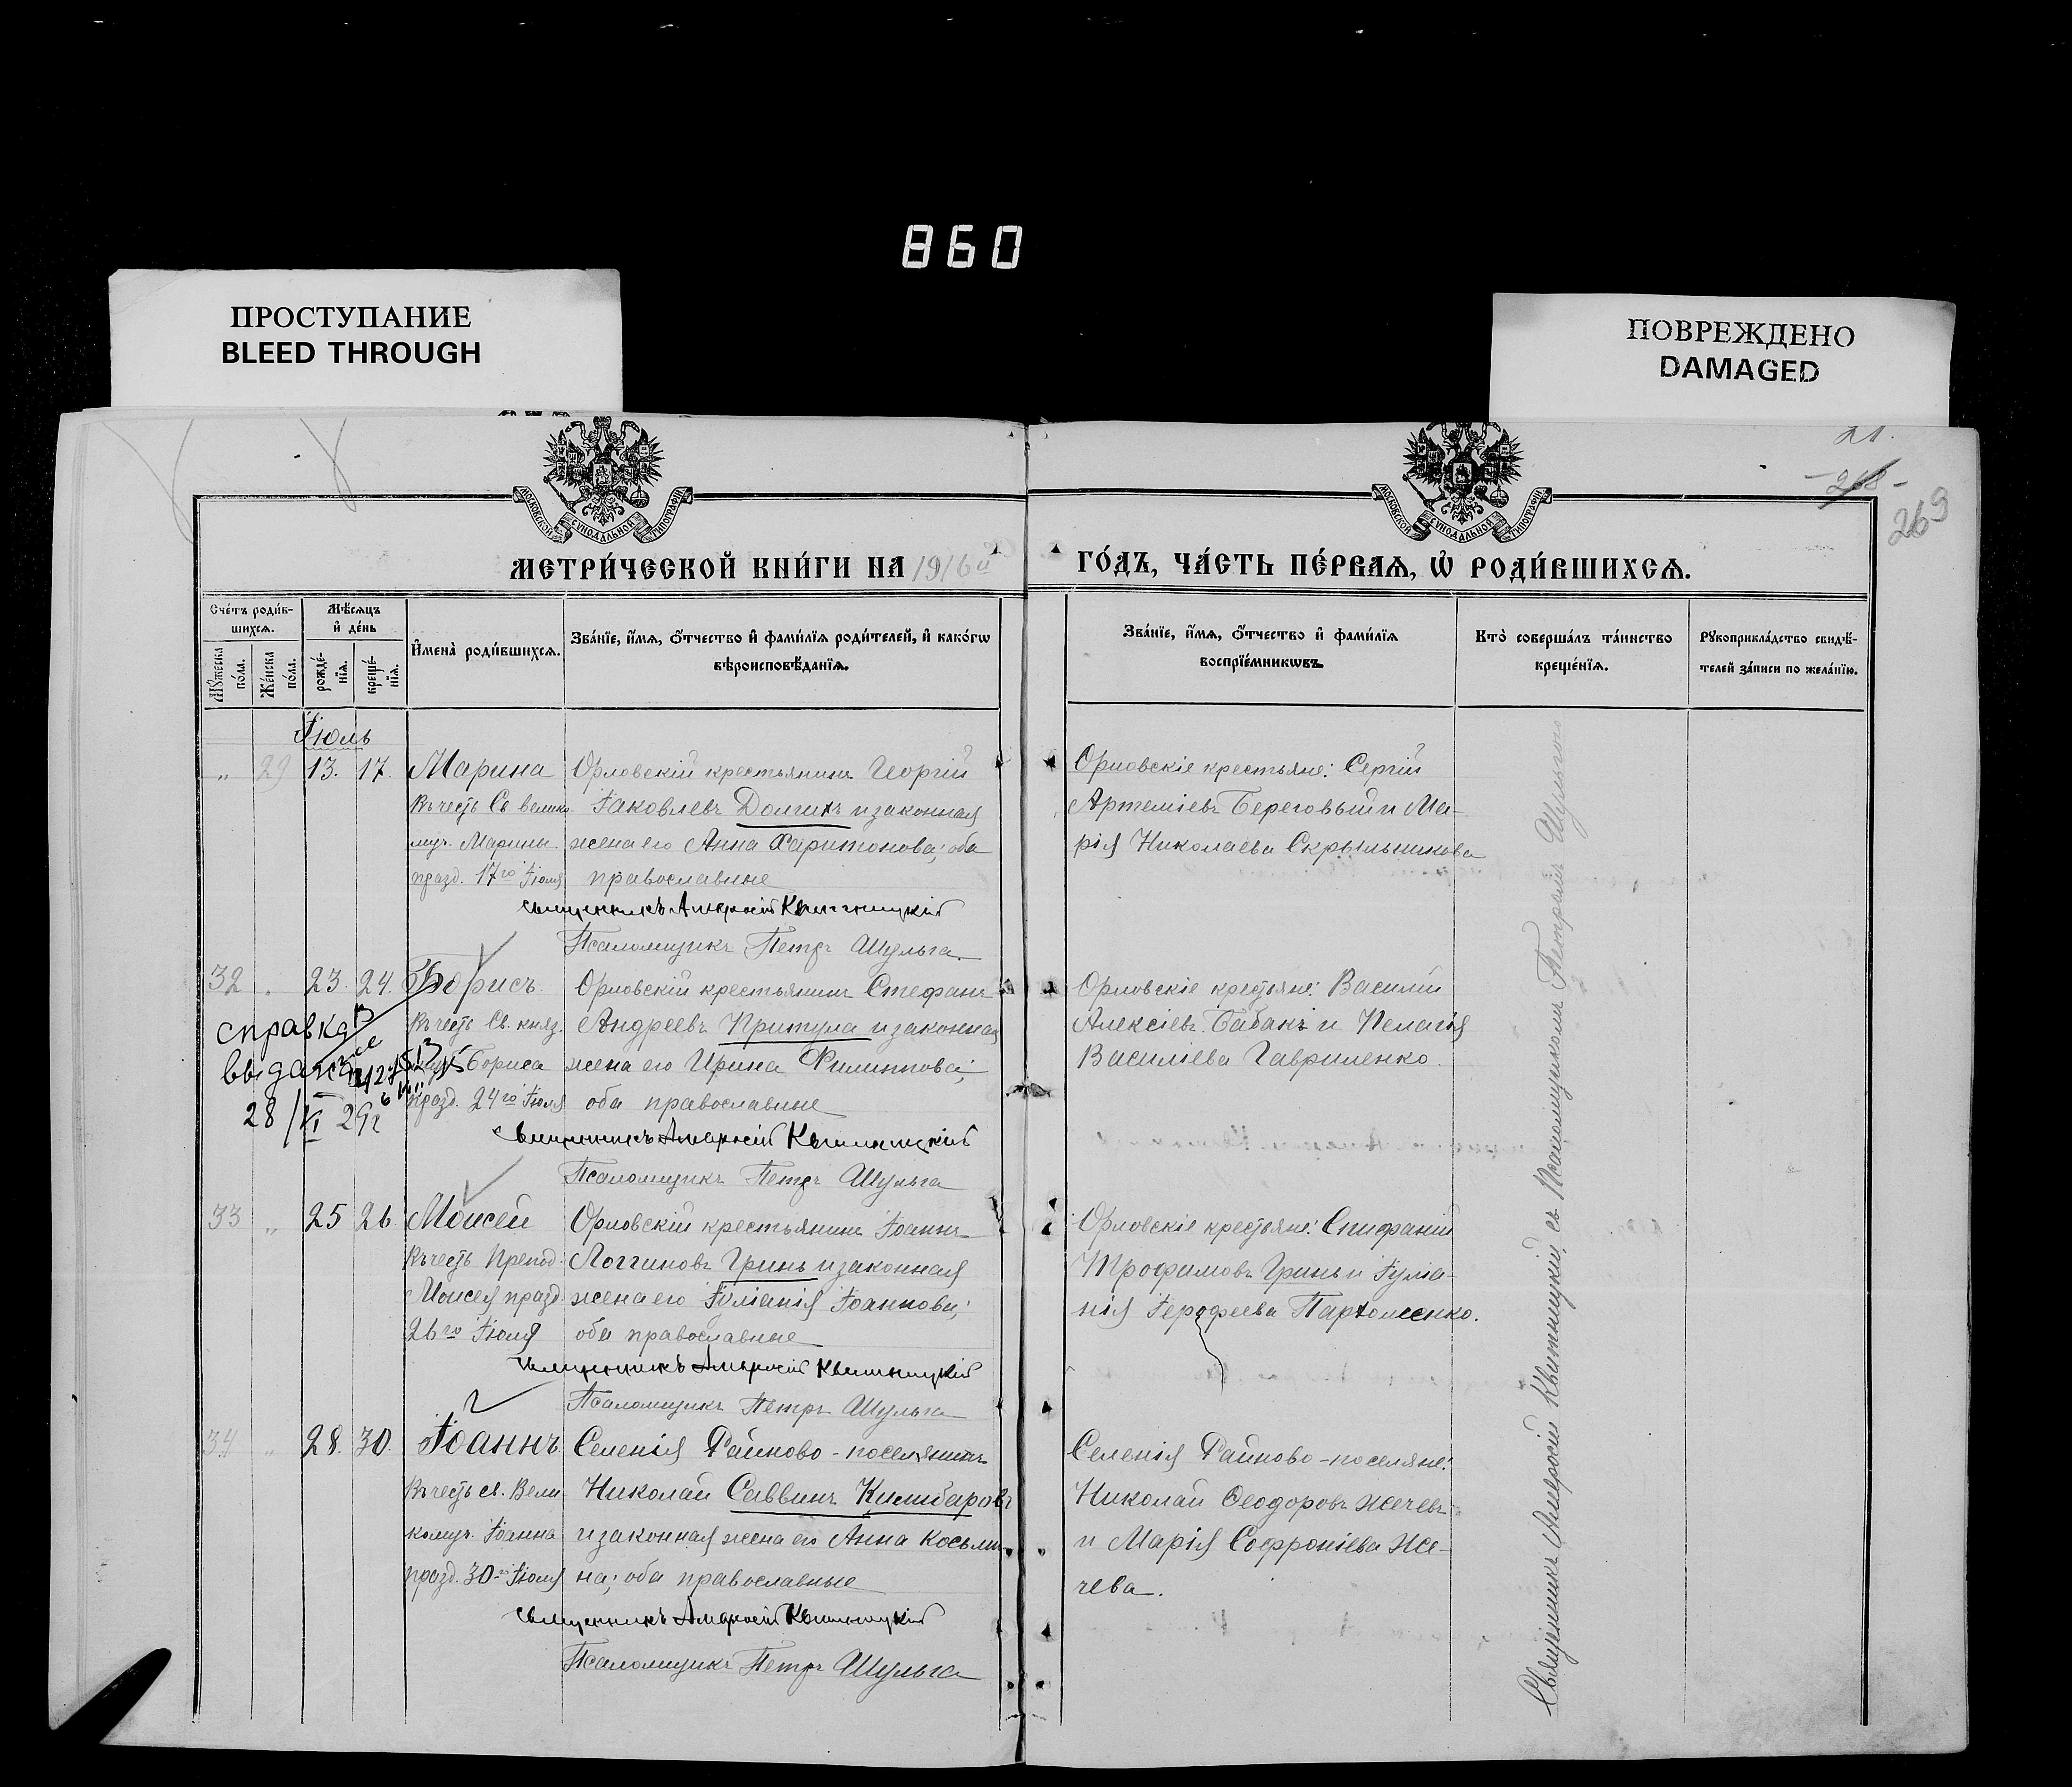 860
ПРОСТУПАНИЕ
BLEED THROUGH
ПОВРЕЖДЕНО
DAMAGED
21.
- 268 -
269
МОСКОВСКОЙ СѴНОДАЛЬНОЙ ТИПОГРАФІИ
МОСКОВСКОЙ СѴНОДАЛЬНОЙ ТИПОГРАФІИ
МЕТРИ́ЧЕСКОЙ КНИ́ГИ НА 1916й ГО́ДЪ, ЧА́СТЬ ПЕ́РВАѦ, Ѡ҆ РОДИ́ВШИХСѦ.
Сче́тъ роди́в-
шихсѧ.
Мѣ́сѧцъ
и҆ де́нь
Мꙋ́жеска по́ла.
Же́нска по́ла.
рожде́-нїѧ.
креще́-нїѧ.
И҆мена̀ роди́вшихсѧ.
Зва́нїе, и҆́мѧ, ѻ҆́тчество и҆ фами́лїѧ роди́телей, и҆ како́гѡ
вѣроисповѣ́данїѧ.
Зва́нїе, и҆́мѧ, ѻ҆́тчество и҆ фами́лїѧ
воспрїе́мникѡвъ.
Кто̀ соверша́лъ та́инство
креще́нїѧ.
Рꙋкоприкла́дство свидѣ́-
телей за́писи по жела́нїю.
Іюль
„ 29 13. 17. Марина
Въ честь Св. велико-
муч. Марины
празд. 17го Іюля
Орловскій крестьянинъ Георгій
Іаковлевъ Долгихъ и законная
жена его Анна Харитонова; оба
православные
Священникъ Амвросій Квитницкій
Псаломщикъ Петръ Шульга.
Орловскіе крестьяне: Сергій
Артеміевъ Береговый и Ма-
рія Николаева Скрыльникова
32 „ 23. 24. Борисъ
Въ честь Св. княз.
Бориса
празд. 24го Іюля
справка
выдана
28/VI 29г
Орловскій крестьянинъ Стефанъ
Андреевъ Притула и законная
жена его Ирина Филиппова;
оба православные
Священникъ Амвросій Квитницкій
Псаломщикъ Петръ Шульга
Орловскіе крестьяне: Василій
Алексіевъ Бабакъ и Пелагія
Василіева Гавриленко.
33 „ 25 26. Моисей
Въ честь Препод.
Моисея празд.
26го Іюля
Орловскій крестьянинъ Іоаннъ
Логгиновъ Гринь и законная
жена его Іуліанія Іоаннова;
оба православные
Священникъ Амвросій Квитницкій
Псаломщикъ Петръ Шульга
Орловскіе крестьяне: Епифаній
Трофимовъ Гринь и Іуліа-
нія Іерофеева Пархоменко.
34 „ 28. 30. Іоаннъ
Въ честь св. Вели-
комуч. Іоанна
празд. 30го Іюля
Селенія Райново - поселянинъ
Николай Саввинъ Кишбаровъ
и законная жена его Анна Косьми-
на; оба православные
Священникъ Амвросій Квитницкій
Псаломщикъ Петръ Шульга
Селенія Райново - поселяне:
Николай Ѳеодоровъ Жечевъ
и Марія Софроніева Же-
чева.
Священникъ Амвросій Квитницкій, съ Псаломщикомъ Петромъ Шульгою